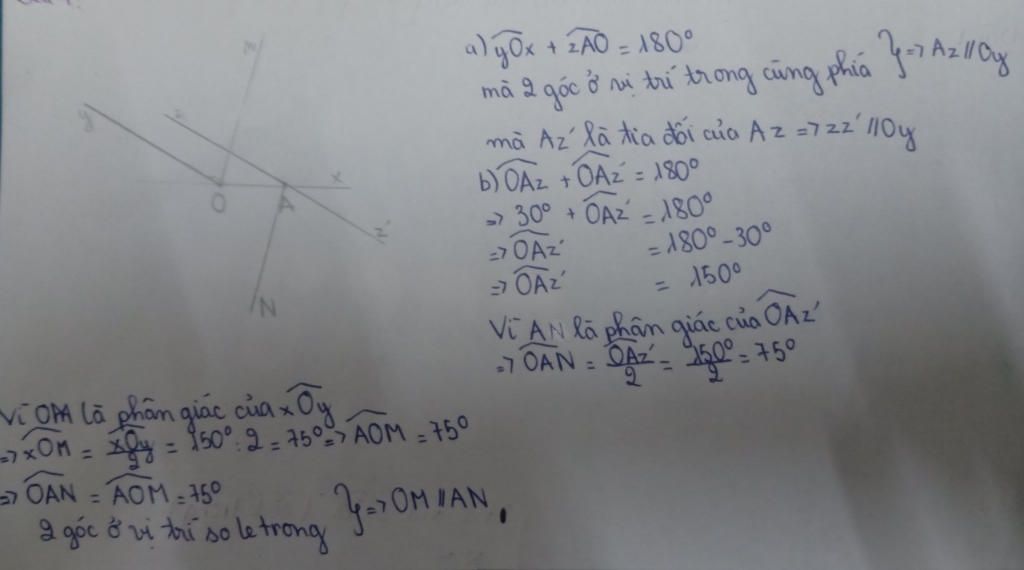 m
y
z
x
O
A
z'
N
a) yOx + zAO = 180°
mà 2 góc ở vị trí trong cùng phía } => Az // Oy
mà Az' là tia đối của Az => zz' // Oy
b) OAz + OAz' = 180°
=> 30° + OAz' = 180°
=> OAz' = 180° - 30°
=> OAz' = 150°
Vì AN là phân giác của OAz'
=> OAN = OAz'/2 = 150°/2 = 75°
Vì OM là phân giác của xOy
=> xOM = xOy/2 = 150° : 2 = 75° => AOM = 75°
=> OAN = AOM = 75°
2 góc ở vị trí so le trong } => OM // AN